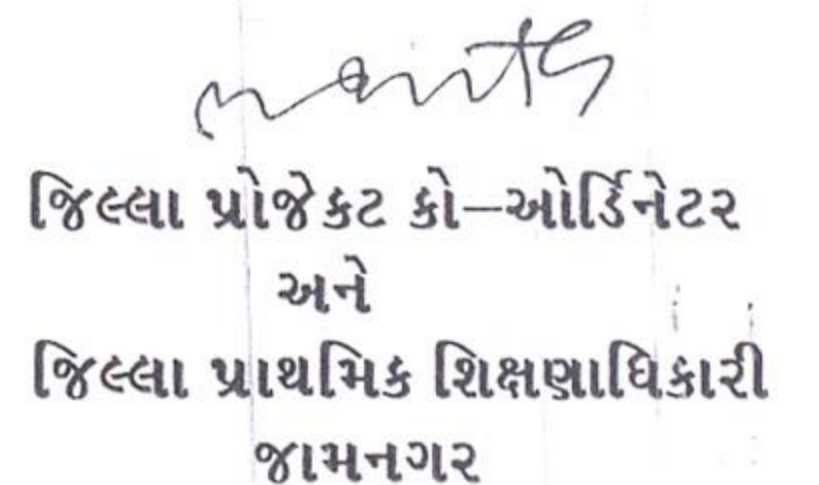 જિલ્લા પ્રોજેકટ કો–ઓર્ડિનેટર
અને
જિલ્લા પ્રાથમિક શિક્ષણાધિકારી
જામનગર